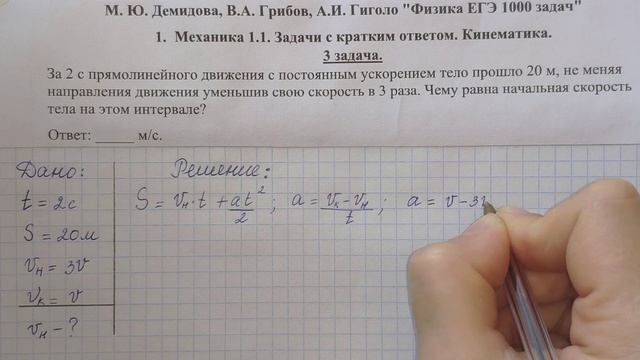 М. Ю. Демидова, В.А. Грибов, А.И. Гиголо "Физика ЕГЭ 1000 задач"
1. Механика 1.1. Задачи с кратким ответом. Кинематика.
3 задача.
За 2 с прямолинейного движения с постоянным ускорением тело прошло 20 м, не меняя
направления движения уменьшив свою скорость в 3 раза. Чему равна начальная скорость
тела на этом интервале?
Ответ: _____ м/с.
Дано:
t = 2с
S = 20м
υн = 3υ
υк = υ
υн – ?
Решение:
S = υн·t + at²/2 ; a = (υк – υн)/t ; a = υ – 3υ